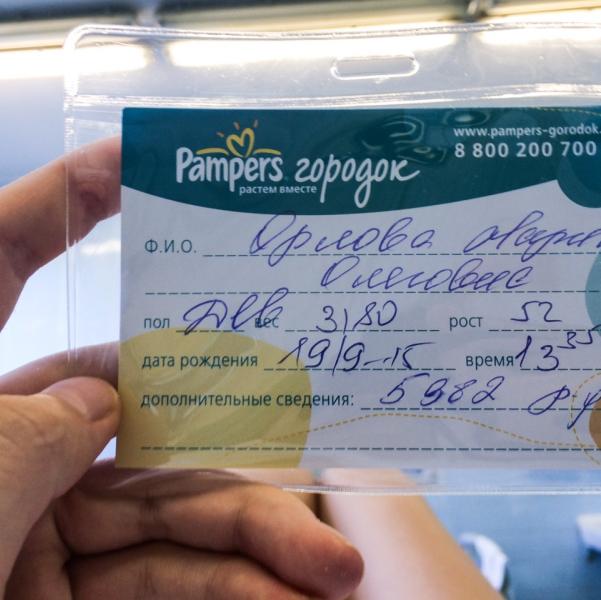 www.pampers-gorodok.
8 800 200 700
Pampers городок
растем вместе
Ф.И.О. Орлова
Олеговна
пол Дев вес 3180 рост 52
дата рождения 19/9-15 время 13 35
дополнительные сведения: 5982